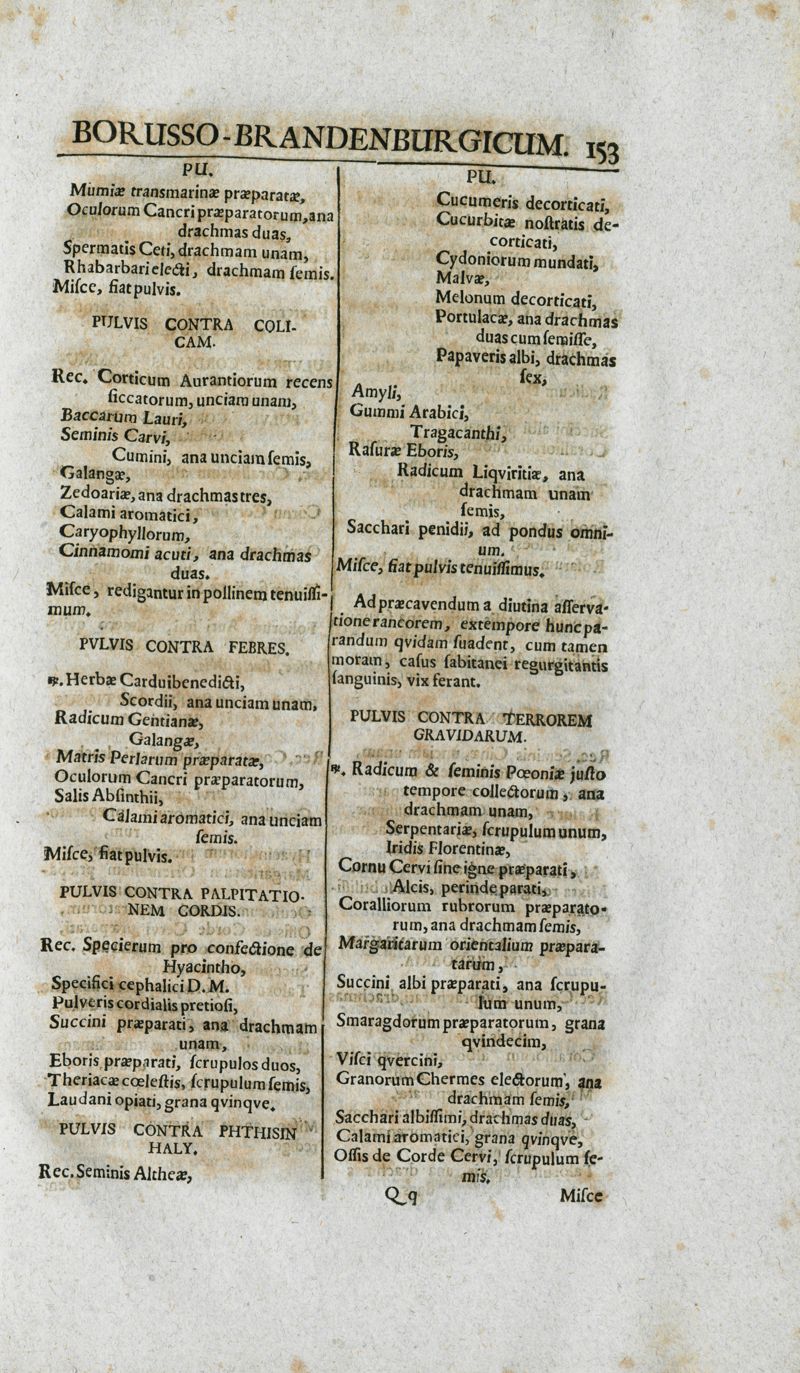 BORUSSO-BRANDENBURGICUM. 153
PU.
Mumiæ transmarinæ præparatæ,
Oculorum Cancri præparatorum, ana
drachmas duas,
Spermatis Ceti, drachmam unam,
Rhabarbari electi, drachmam ſemis.
Miſce, fiat pulvis.
PULVIS CONTRA COLI-
CAM.
Rec. Corticum Aurantiorum recens
ſiccatorum, unciam unam,
Baccarum Lauri,
Seminis Carvi,
Cumini, ana unciam ſemis,
Galangæ,
Zedoariæ, ana drachmas tres,
Calami aromatici,
Caryophyllorum,
Cinnamomi acuti, ana drachmas
duas.
Miſce, redigantur in pollinem tenuiſſi-
mum.
PVLVIS CONTRA FEBRES.
℞. Herbæ Cardui benedicti,
Scordii, ana unciam unam,
Radicum Gentianæ,
Galangæ,
Matris Perlarum præparatæ,
Oculorum Cancri præparatorum,
Salis Abſinthii,
Calami aromatici, ana unciam
ſemis.
Miſce, fiat pulvis.
PULVIS CONTRA PALPITATIO-
NEM CORDIS.
Rec. Specierum pro confectione de
Hyacintho,
Specifici cephalici D. M.
Pulveris cordialis pretioſi,
Succini præparati, ana drachmam
unam,
Eboris præparati, ſcrupulos duos,
Theriacæ cœleſtis, ſcrupulum ſemis,
Laudani opiati, grana qvinqve.
PULVIS CONTRA PHTHISIN
HALY.
Rec. Seminis Altheæ,
PU.
Cucumeris decorticati,
Cucurbitæ noſtratis de-
corticati,
Cydoniorum mundati,
Malvæ,
Melonum decorticati,
Portulacæ, ana drachmas
duas cum ſemiſſe,
Papaveris albi, drachmas
ſex,
Amyli,
Gummi Arabici,
Tragacanthi,
Raſuræ Eboris,
Radicum Liqviritiæ, ana
drachmam unam
ſemis,
Sacchari penidii, ad pondus omni-
um.
Miſce, fiat pulvis tenuiſſimus.
Ad præcavendum a diutina aſſerva-
tione rancorem, extempore hunc pa-
randum qvidam ſuadent, cum tamen
moram, caſus ſabitanei regurgitantis
ſanguinis, vix ferant.
PULVIS CONTRA TERROREM
GRAVIDARUM.
℞. Radicum & ſeminis Pœoniæ juſto
tempore collectorum, ana
drachmam unam,
Serpentariæ, ſcrupulum unum,
Iridis Florentinæ,
Cornu Cervi ſine igne præparati,
Alcis, perinde parati,
Coralliorum rubrorum præparato-
rum, ana drachmam ſemis,
Margaritarum orientalium præpara-
tarum,
Succini albi præparati, ana ſcrupu-
lum unum,
Smaragdorum præparatorum, grana
qvindecim,
Viſci qvercini,
Granorum Chermes electorum, ana
drachmam ſemis,
Sacchari albiſſimi, drachmas duas,
Calami aromatici, grana qvinqve,
Oſſis de Corde Cervi, ſcrupulum ſe-
mis.
Qq Miſce